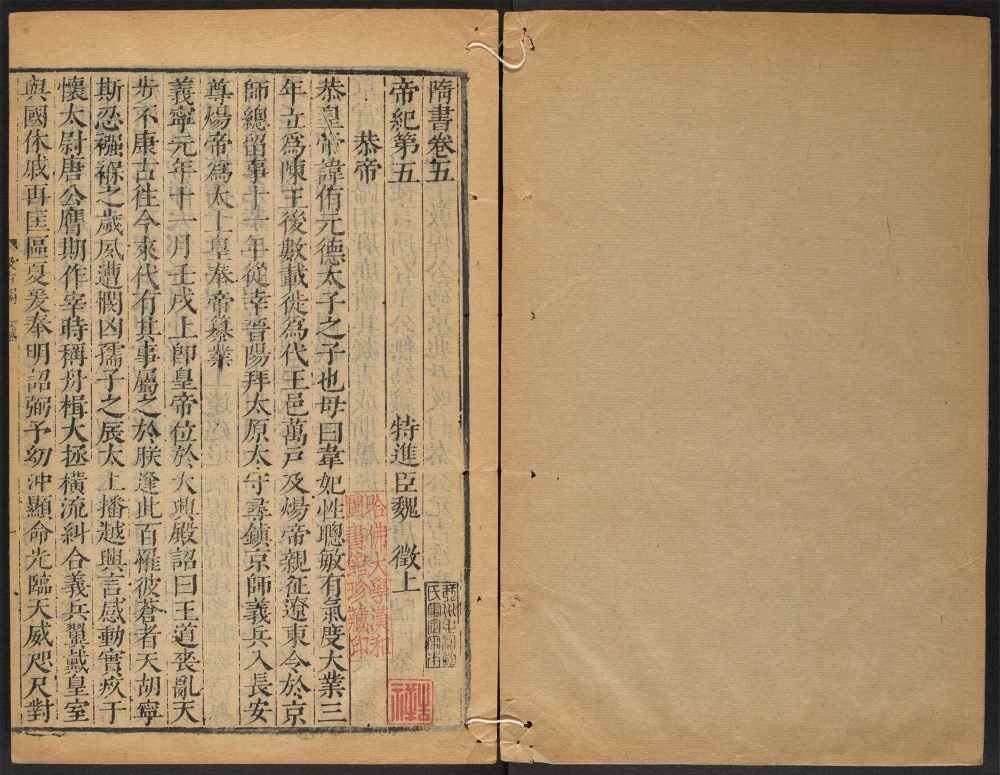 隋書卷五
帝紀第五 特進臣魏 徵上
恭帝
恭皇帝諱侑元德太子之子也母曰韋妃性聰敏有氣度大業三
年立爲陳王後數載徙爲代王邑萬戶及煬帝親征遼東令於京
師總留事十一年從幸晉陽拜太原太守尋鎮京師義兵入長安
尊煬帝爲太上皇奉帝纂業
義寧元年十一月壬戌上卽皇帝位於大興殿詔曰王道喪亂天
步不康古往今來代有其事屬之於朕逢此百罹彼蒼者天胡寧
斯忍襁褓之歲夙遭憫凶孺子之辰太上播越興言感動實疚于
懷太尉唐公膺期作宰時稱舟楫大拯橫流糾合義兵翼戴皇室
與國休戚再匡區夏爰奉明詔弼予幼沖顯命光臨天威咫尺對
哈佛大學漢和
圖書館珍藏印